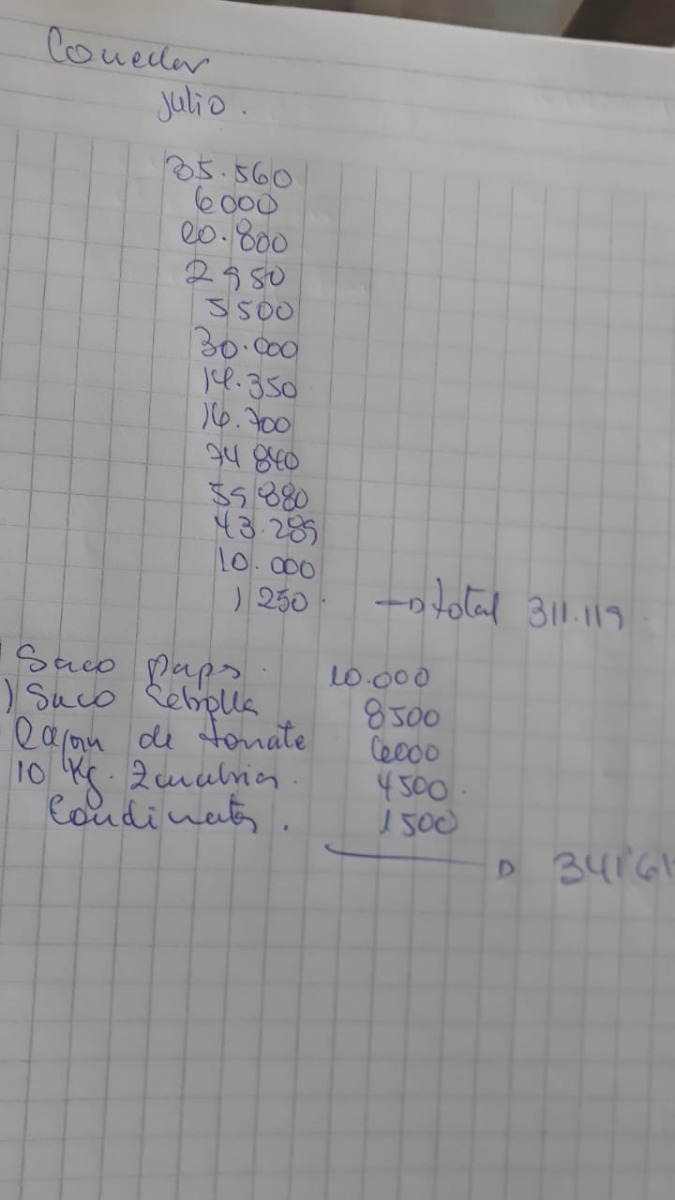 Comedor
julio.
35.560
6000
20.800
2950
5500
30.000
14.350
16.700
74 840
59 880
43.289
10.000
1 250. → total 311.119.
Saco papas. 10.000
1 Saco Cebolla 8500
Cajon de tomate 6000
10 Kg. Zanahria. 4500.
Condimentos. 1500
→ 341'61